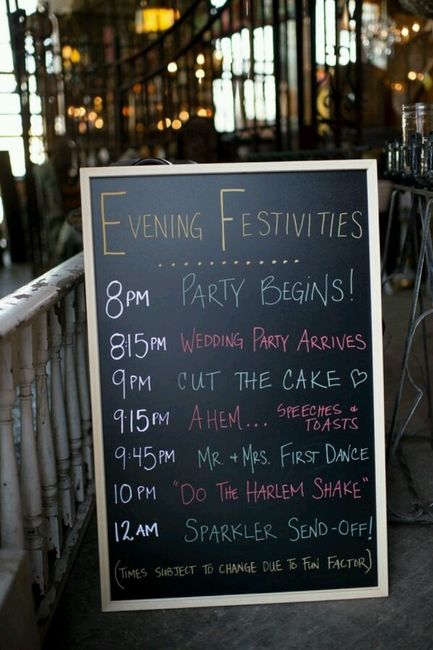 EVENING FESTIVITIES
8PM PARTY BEGINS!
8:15PM WEDDING PARTY ARRIVES
9PM CUT THE CAKE ♡
9:15PM AHEM... SPEECHES & TOASTS
9:45PM MR. & MRS. FIRST DANCE
10PM "DO THE HARLEM SHAKE"
12AM SPARKLER SEND-OFF!
(TIMES SUBJECT TO CHANGE DUE TO FUN FACTOR)